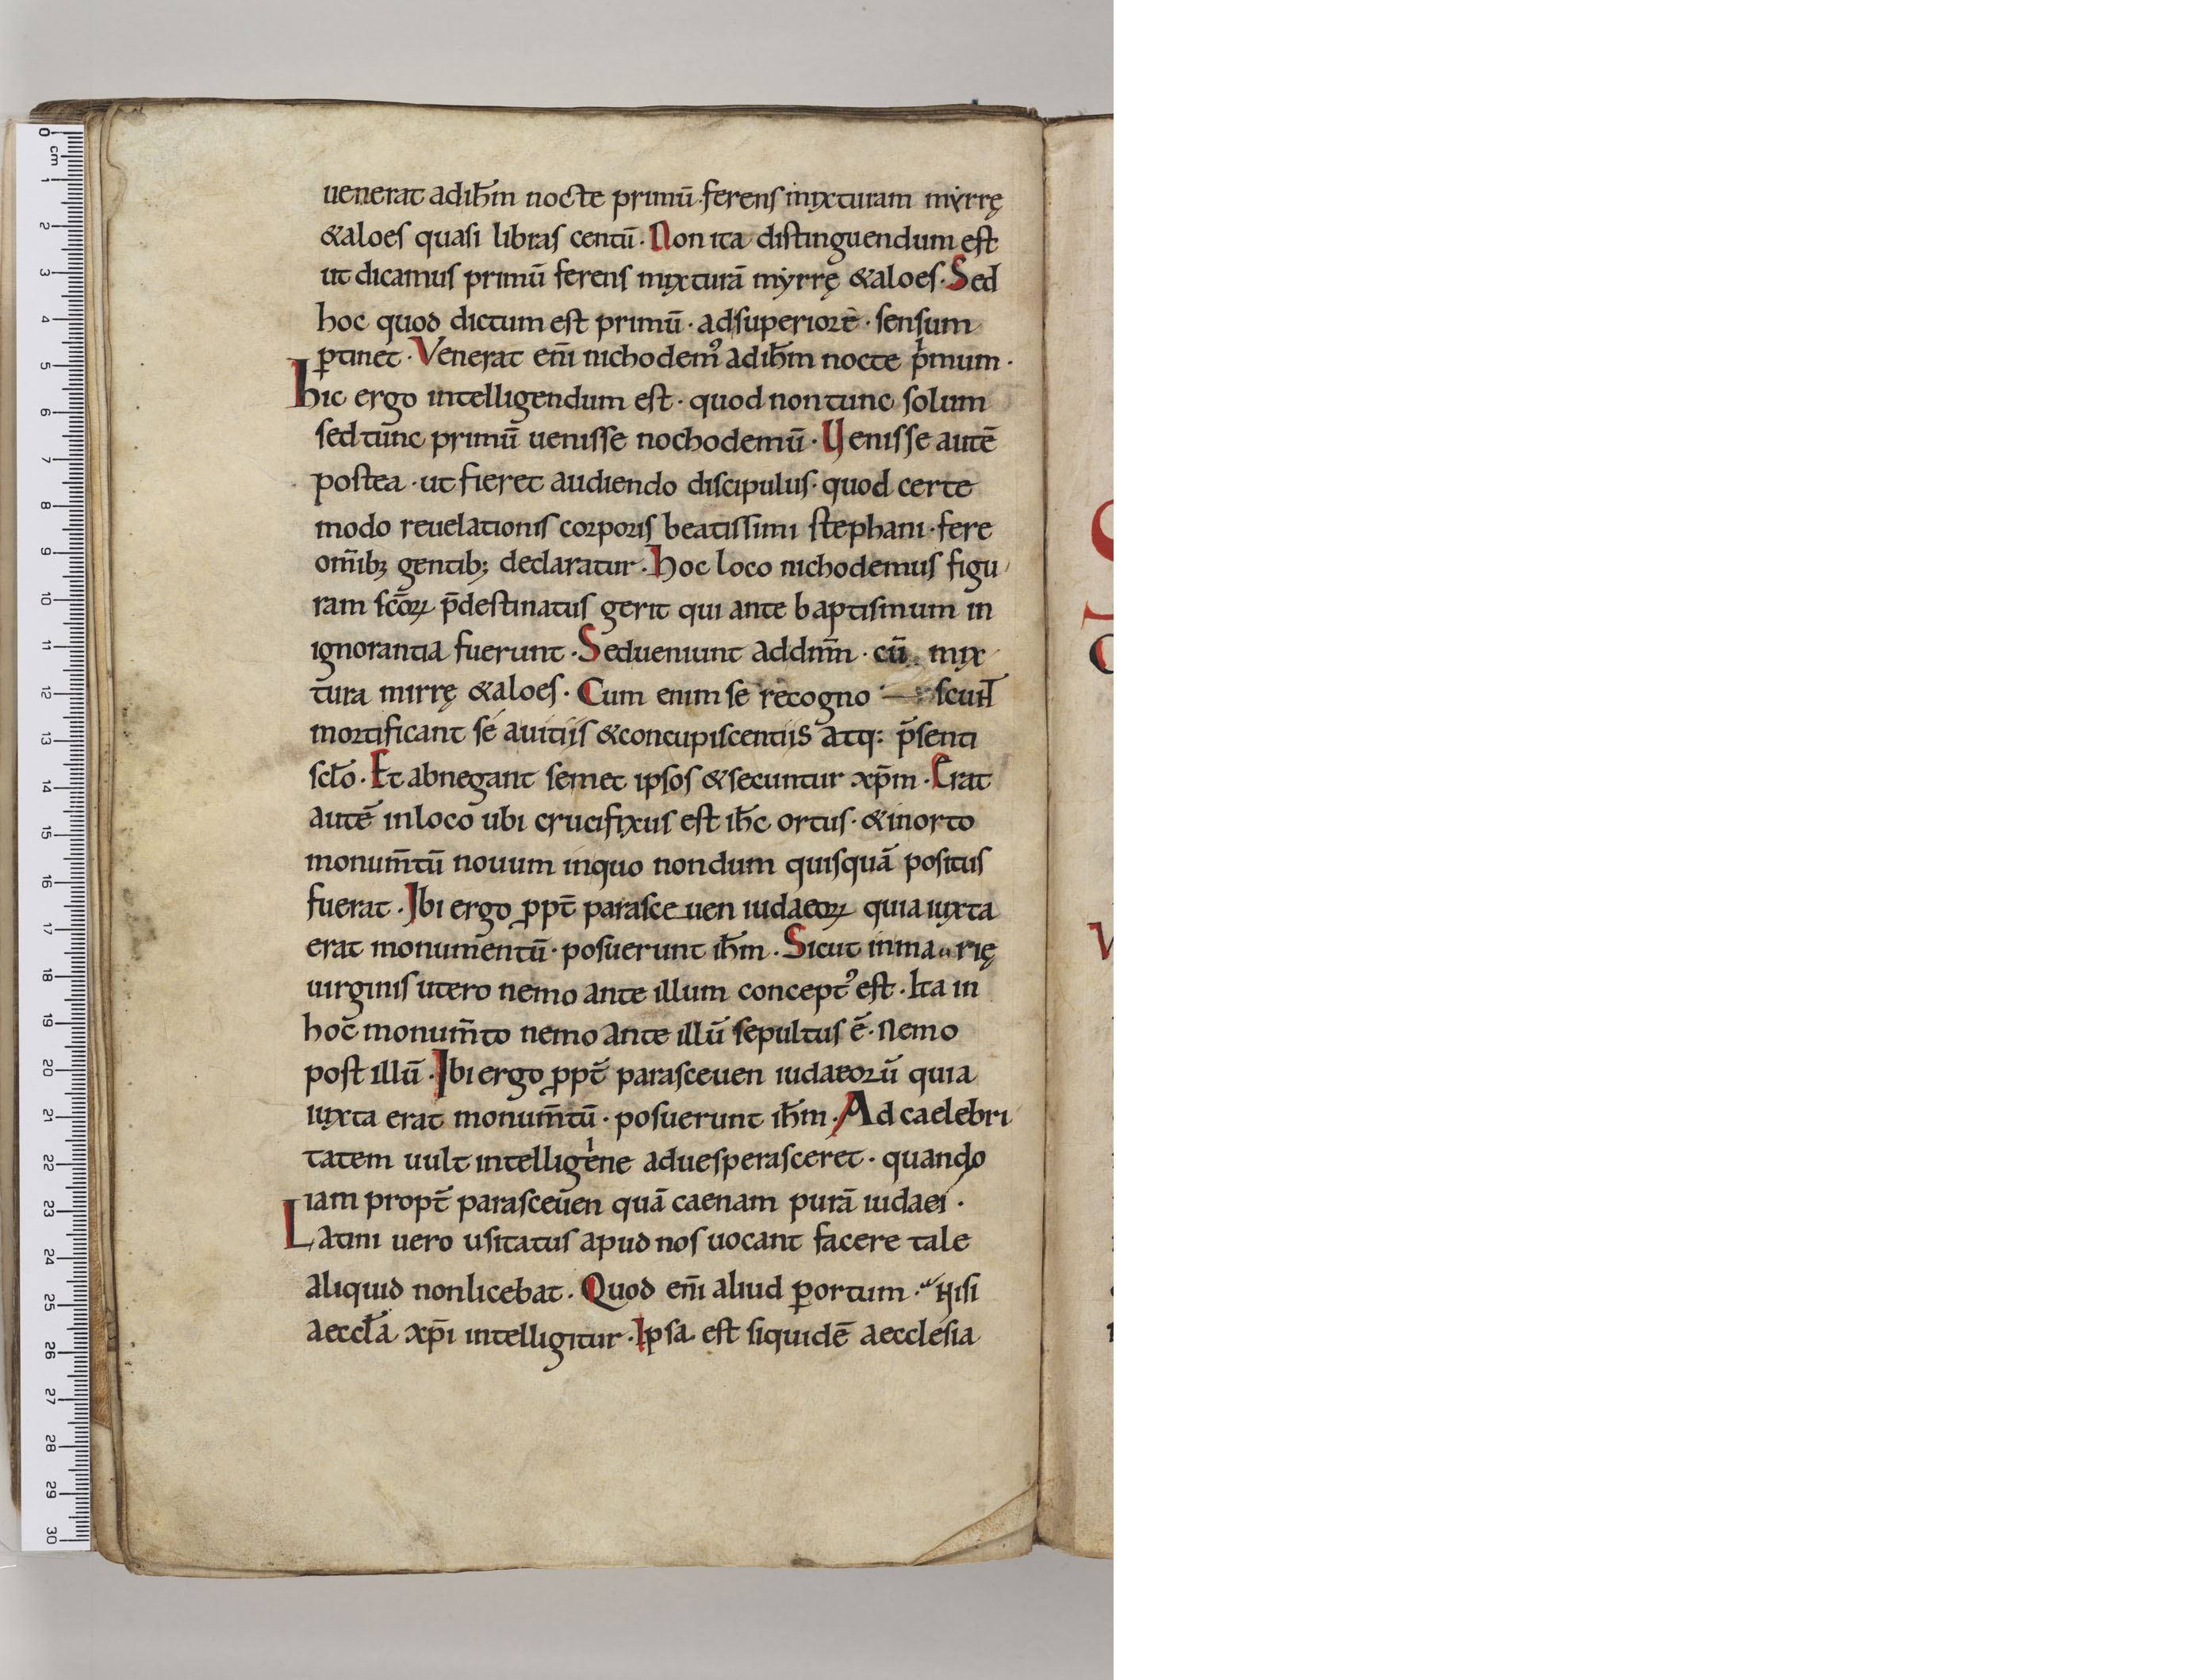 uenerat adih̅m nocte primū·ferens mixturam mẏrrę
&aloes quasi libras centū· Non ita distinguendum est
ut dicamus primū ferens mixturā mẏrrę &aloes· Sed
hoc quod dictum est primū· adsuperiorē· sensum
ꝑtinet· Venerat eni̅ nichodemꝰ adih̅m nocte pͥmum·
hic ergo intelligendum est· quod non tunc solum
sed tunc primū uenisse nochodemū· Uenisse autē
postea· ut fieret audiendo discipulus· quod certe
modo reuelationis corporis beatissimi stephani· fere
om̅ib; gentib; declaratur· hoc loco nichodemus figu
ram sc̅oꝝ p̅destinatus gerit qui ante baptismum in
ignorantia fuerunt· Sed ueniunt addnm̅· cū mix
tura mirrę &aloes· Cum enim se recogno scunt
mortificant se auitiis &concupiscentiis atq: p̅senti
scl̅o· Et abnegant semet ipsos &secuntur xp̅m· Erat
autē inloco ubi crucifixus est ih̅c ortus· &inorto
monum̅tū nouum inquo nondum quisquā positus
fuerat· Ibi ergo ꝓpt̅ parasceuen iudaeoꝝ quia iuxta
erat monumentū· posuerunt ih̅m· Sicut inma rię
uirginis utero nemo ante illum conceptꝰ est· Ita in
hoc monum̅to nemo ante illū sepultus ē· Nemo
post illū· Ibi ergo ꝓpt̅ parasceuen iudaeorū quia
iuxta erat monum̅tū· posuerunt ih̅m· Ad caelebri
tatem uult intelligeͥne aduesperasceret· quando
iam propt̅ parasceuen quā caenam purā iudaei·
Latini uero usitatus apud nos uocant facere tale
aliquid nonlicebat· Quod eni̅ aliud ꝑortum· Nisi
aeccl̅a xp̅i intelligitur· Ipsa est siquidē aecclesia
0 cm 1 2 3 4 5 6 7 8 9 10 11 12 13 14 15 16 17 18 19 20 21 22 23 24 25 26 27 28 29 30